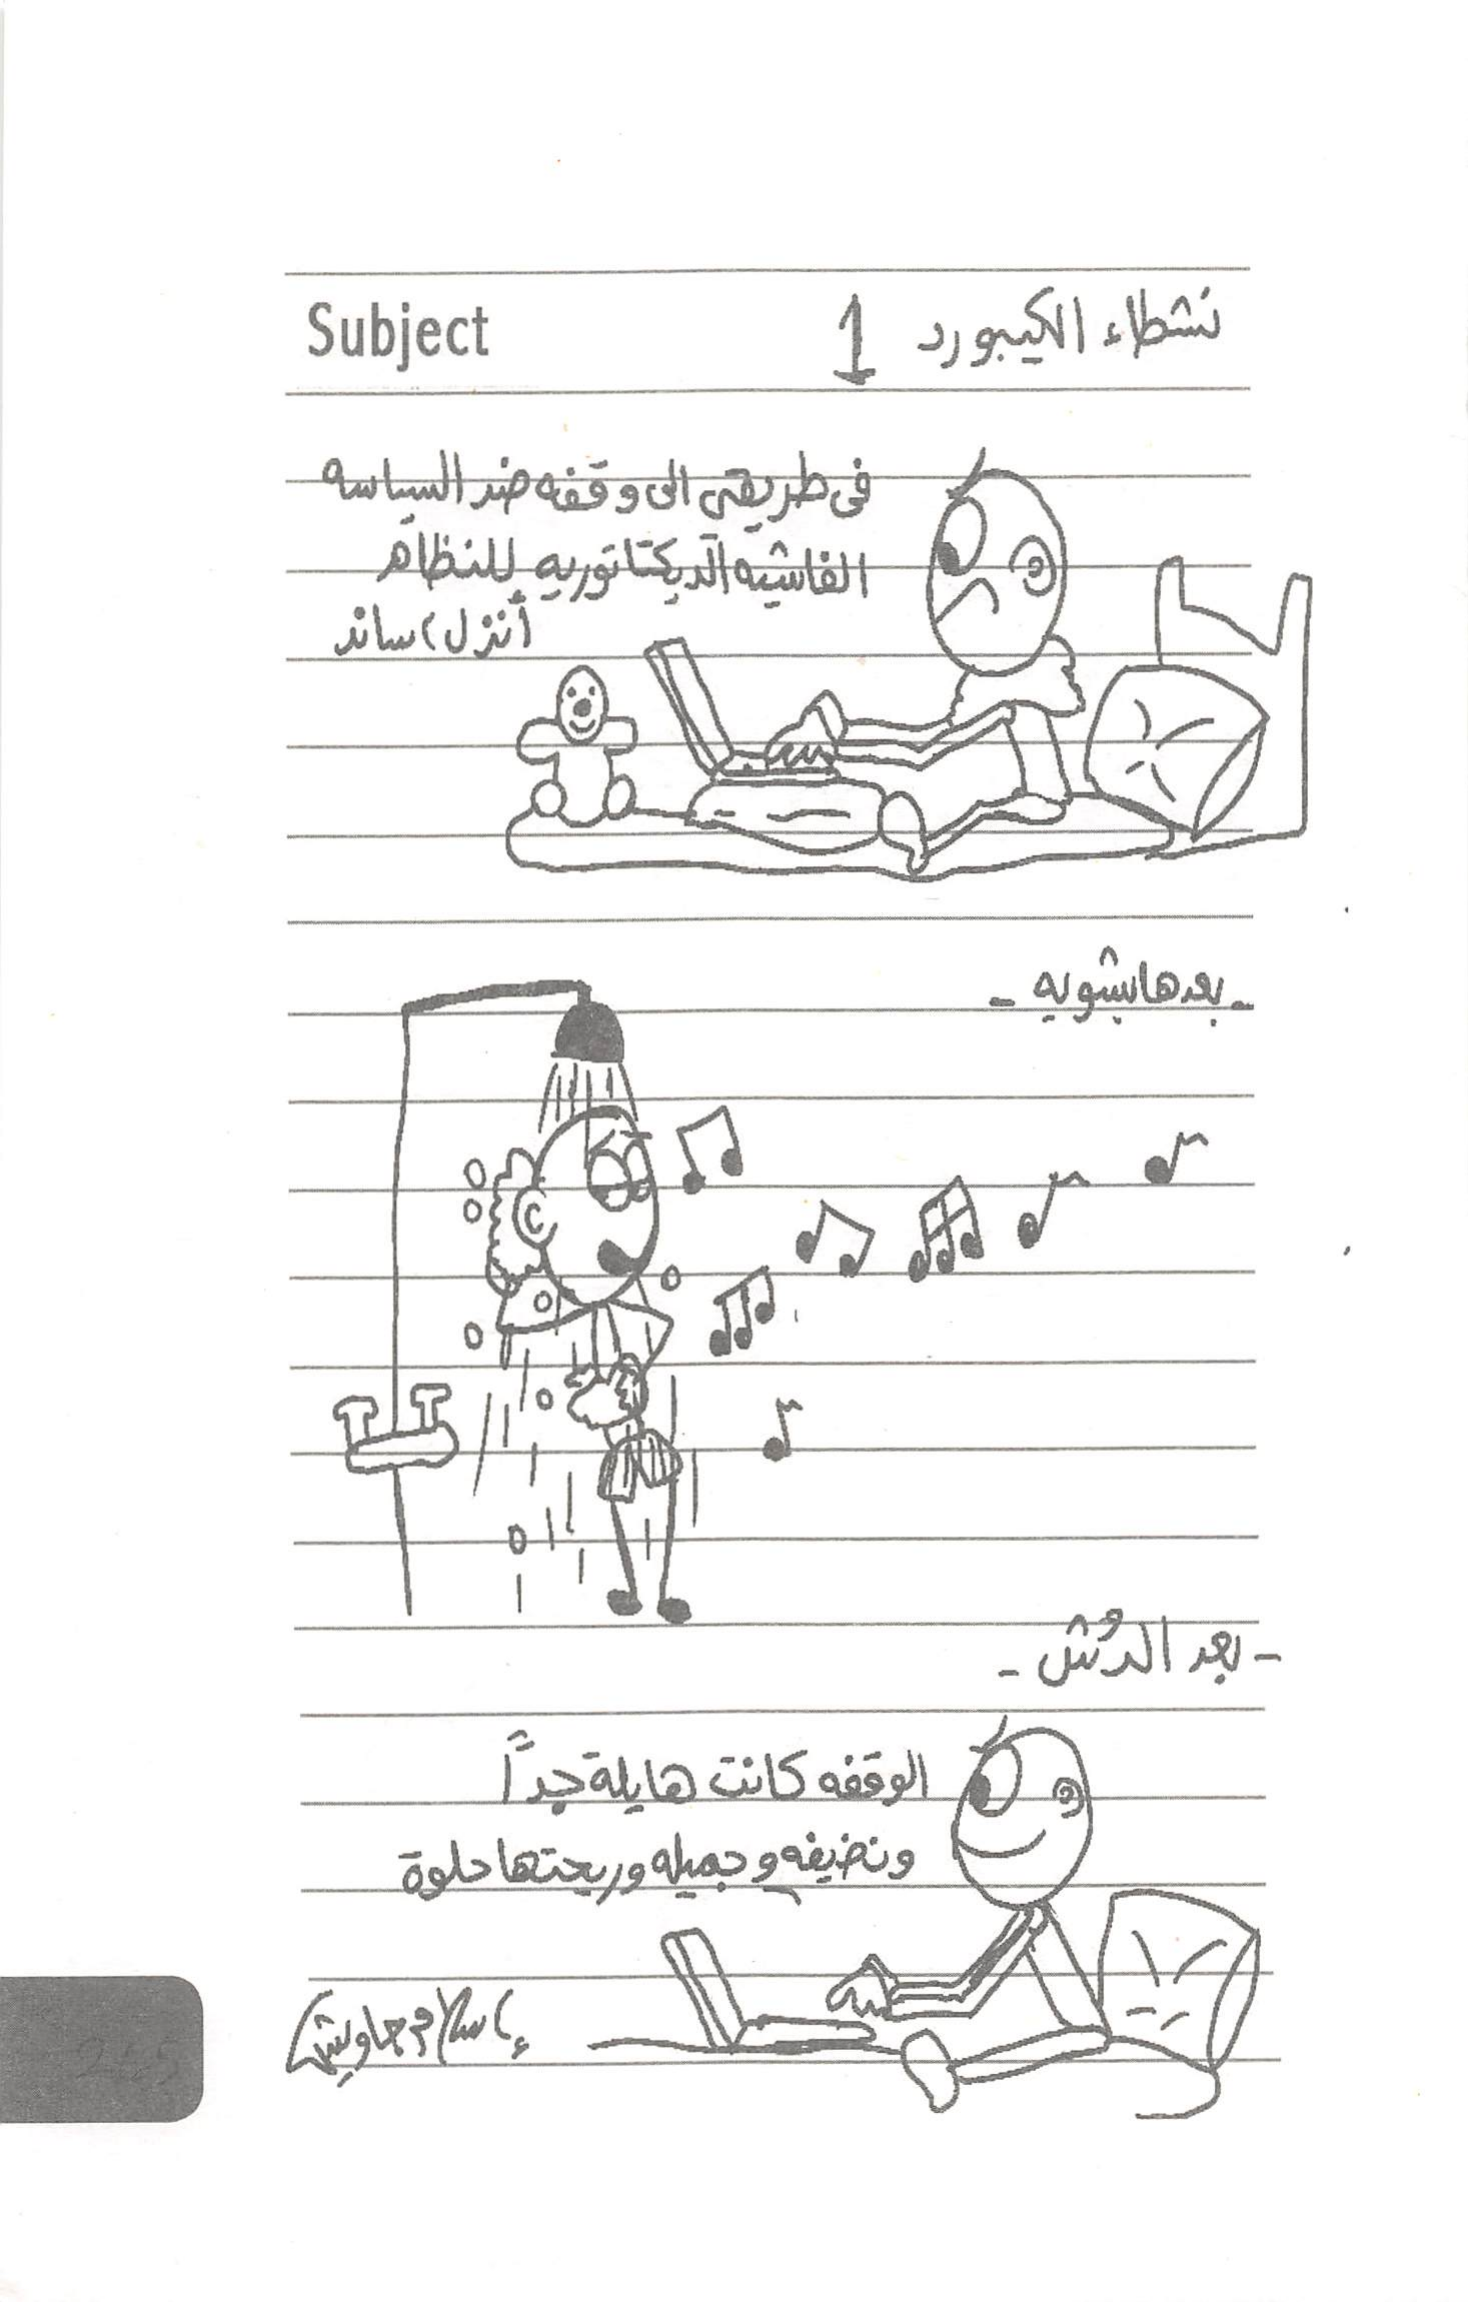 Subject
نشطاء الكيبورد 1
فى طريقى الى وقفه ضد السياسه
الفاشيه الديكتاتوريه للنظام
أنزل) ساند
- بعدها بشويه -
- بعد الدُش -
الوقفه كانت هايلة جدًا
ونضيفه وجميله وريحتها حلوة
إسلام جاويش